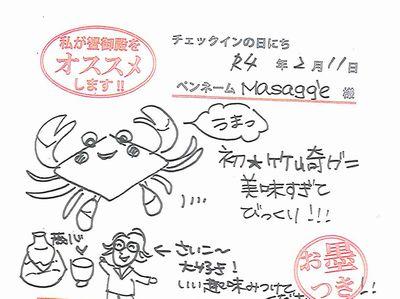 私が蟹御殿を
オススメ
します!!
チェックインの日にち
R4 年 2 月 11 日
ペンネーム Masaggie 様
うまっ
初★竹崎ガニ
美味すぎて
びっくり!!!
← さいこ〜
大好き!
いい趣味みつけて
お墨
つき